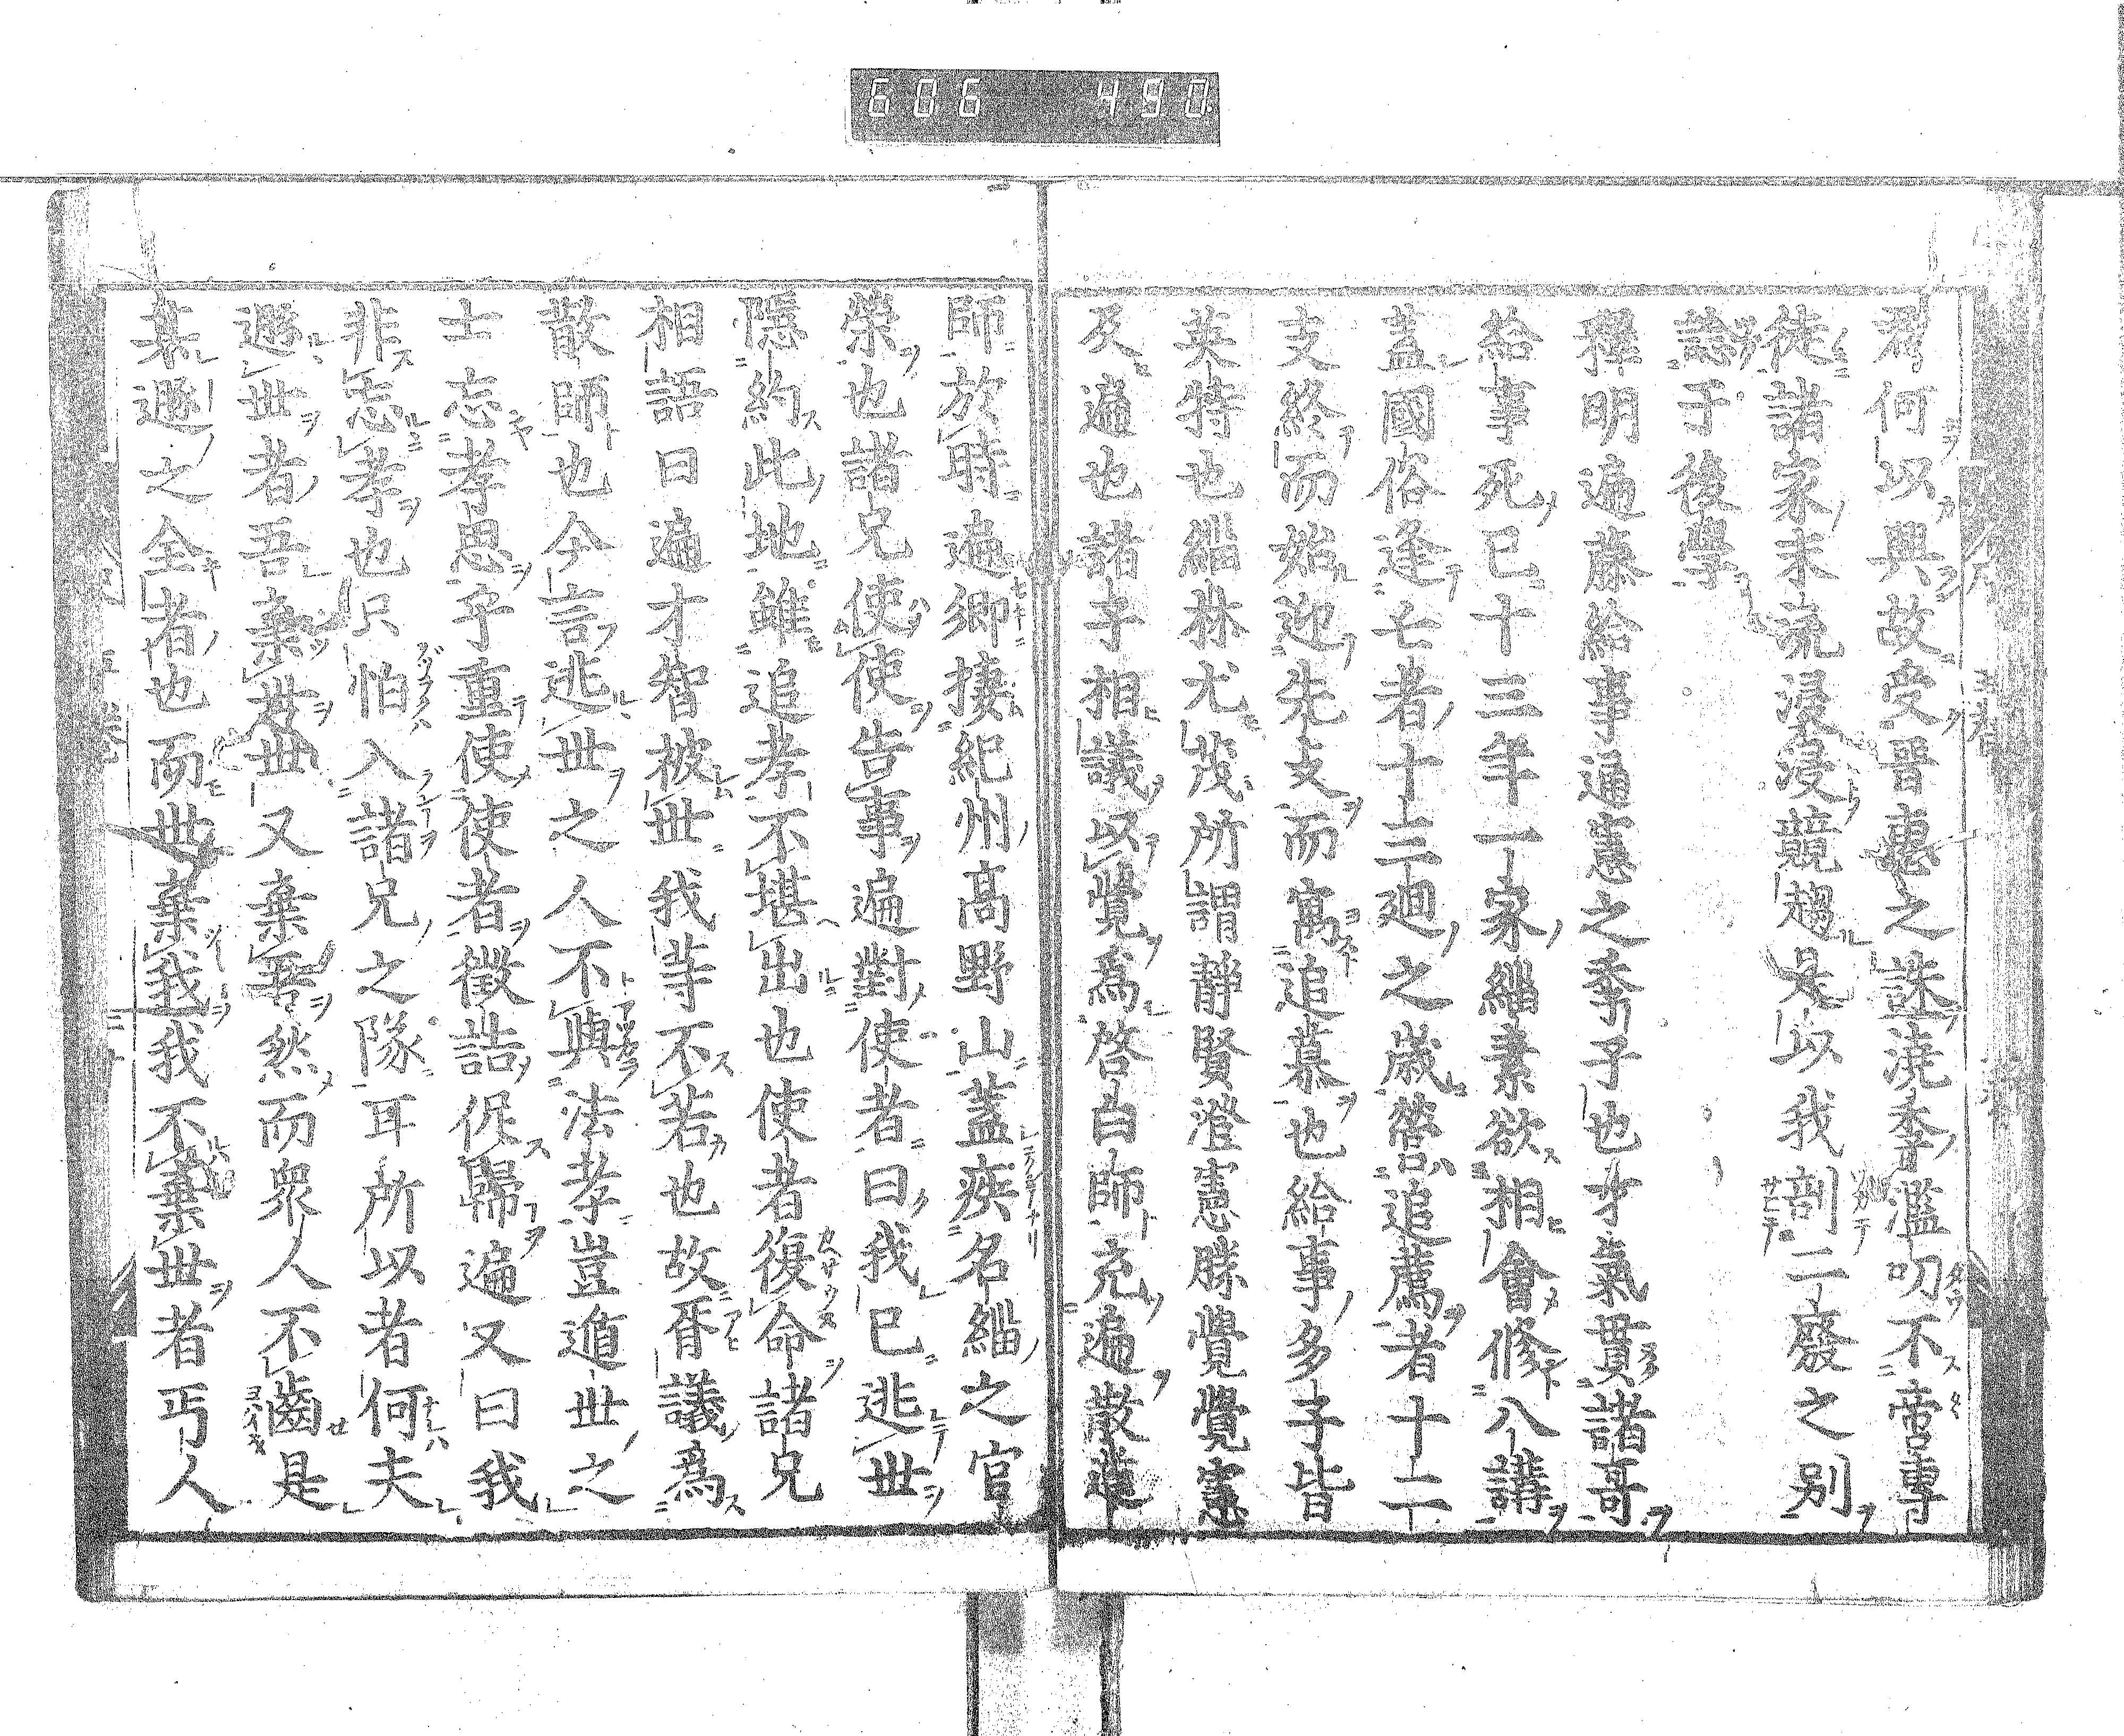 606 490
君何以興故受晋惠之誅澆季濫叨不啻專
徒諸家末流浸浸競趨是以我剖二癈之别
誌于後學
釋明遍藤給事通憲之季子也才氣貫諸哥
給事死已十三年一家緇素欲相會修八講
蓋國俗逢亡者十三廻之歳營追薦者十二
支終而始迎先支而寓追慕也給事多子皆
英特也緇林尤茂所謂静賢澄憲勝覺覺憲
及遍也諸子相議以覺爲啓白師充遍散莚
師於時遍卿捿紀州高野山蓋疾名緇之官
榮也諸兄使使告事遍對使者曰我已逃世
隱約此地雖追孝不堪出也使者復命諸兄
相語曰遍才智被世我等不若也故胥議爲
散師也今言逃世之人不與法孝豈遁世之
士忘孝思乎重使使者徵誥俶歸遍又曰我
非忘孝也只怕入諸兄之隊耳所以者何夫
遯世者吾棄世世又棄吾然而衆人不齒是
某遯之全者也而世棄我我不棄世者丐人